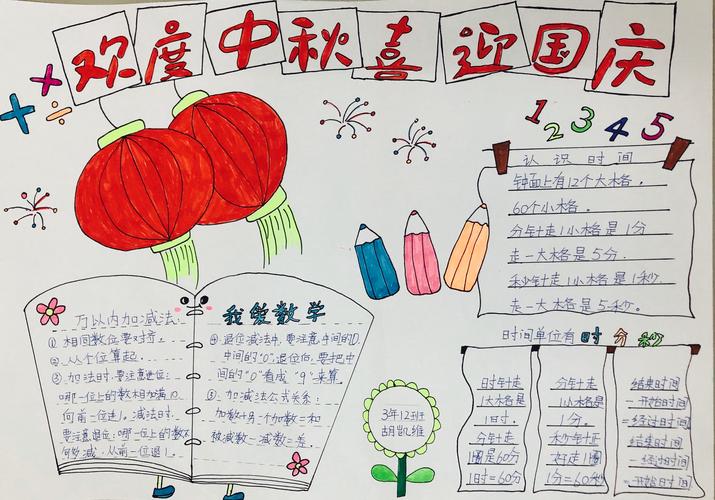 欢度中秋喜迎国庆
1 2 3 4 5
认识时间
钟面上有12个大格.
60个小格.
分针走1小格是1分
走一大格是5分.
秒针走1小格是1秒.
走一大格是5秒.
万以内加减法:
① 相同数位要对齐.
② 从个位算起.
③ 加法时.要注意进位:
哪一位上的数相加满10
向前一位进1。减法时.
要注意退位:哪一位上的数不
够减.从前一位退1.
我爱数学
④ 退位减法中.要注意中间的0.
中间的"0"退位后.要把中
间的"0"看成"9"来算.
加减法公式关系:
加数+另一个加数=和
被减数-减数=差.
3年12班
胡凯维
时间单位有时分秒
时针走
1大格是
1时.
分针走
1圈是60分
1时=60分
分针走
1小格是
1分.
秒针正
好走1圈
1分=60秒
结束时间
-开始时间
=经过时间
结束时间
-经过时间
=开始时间